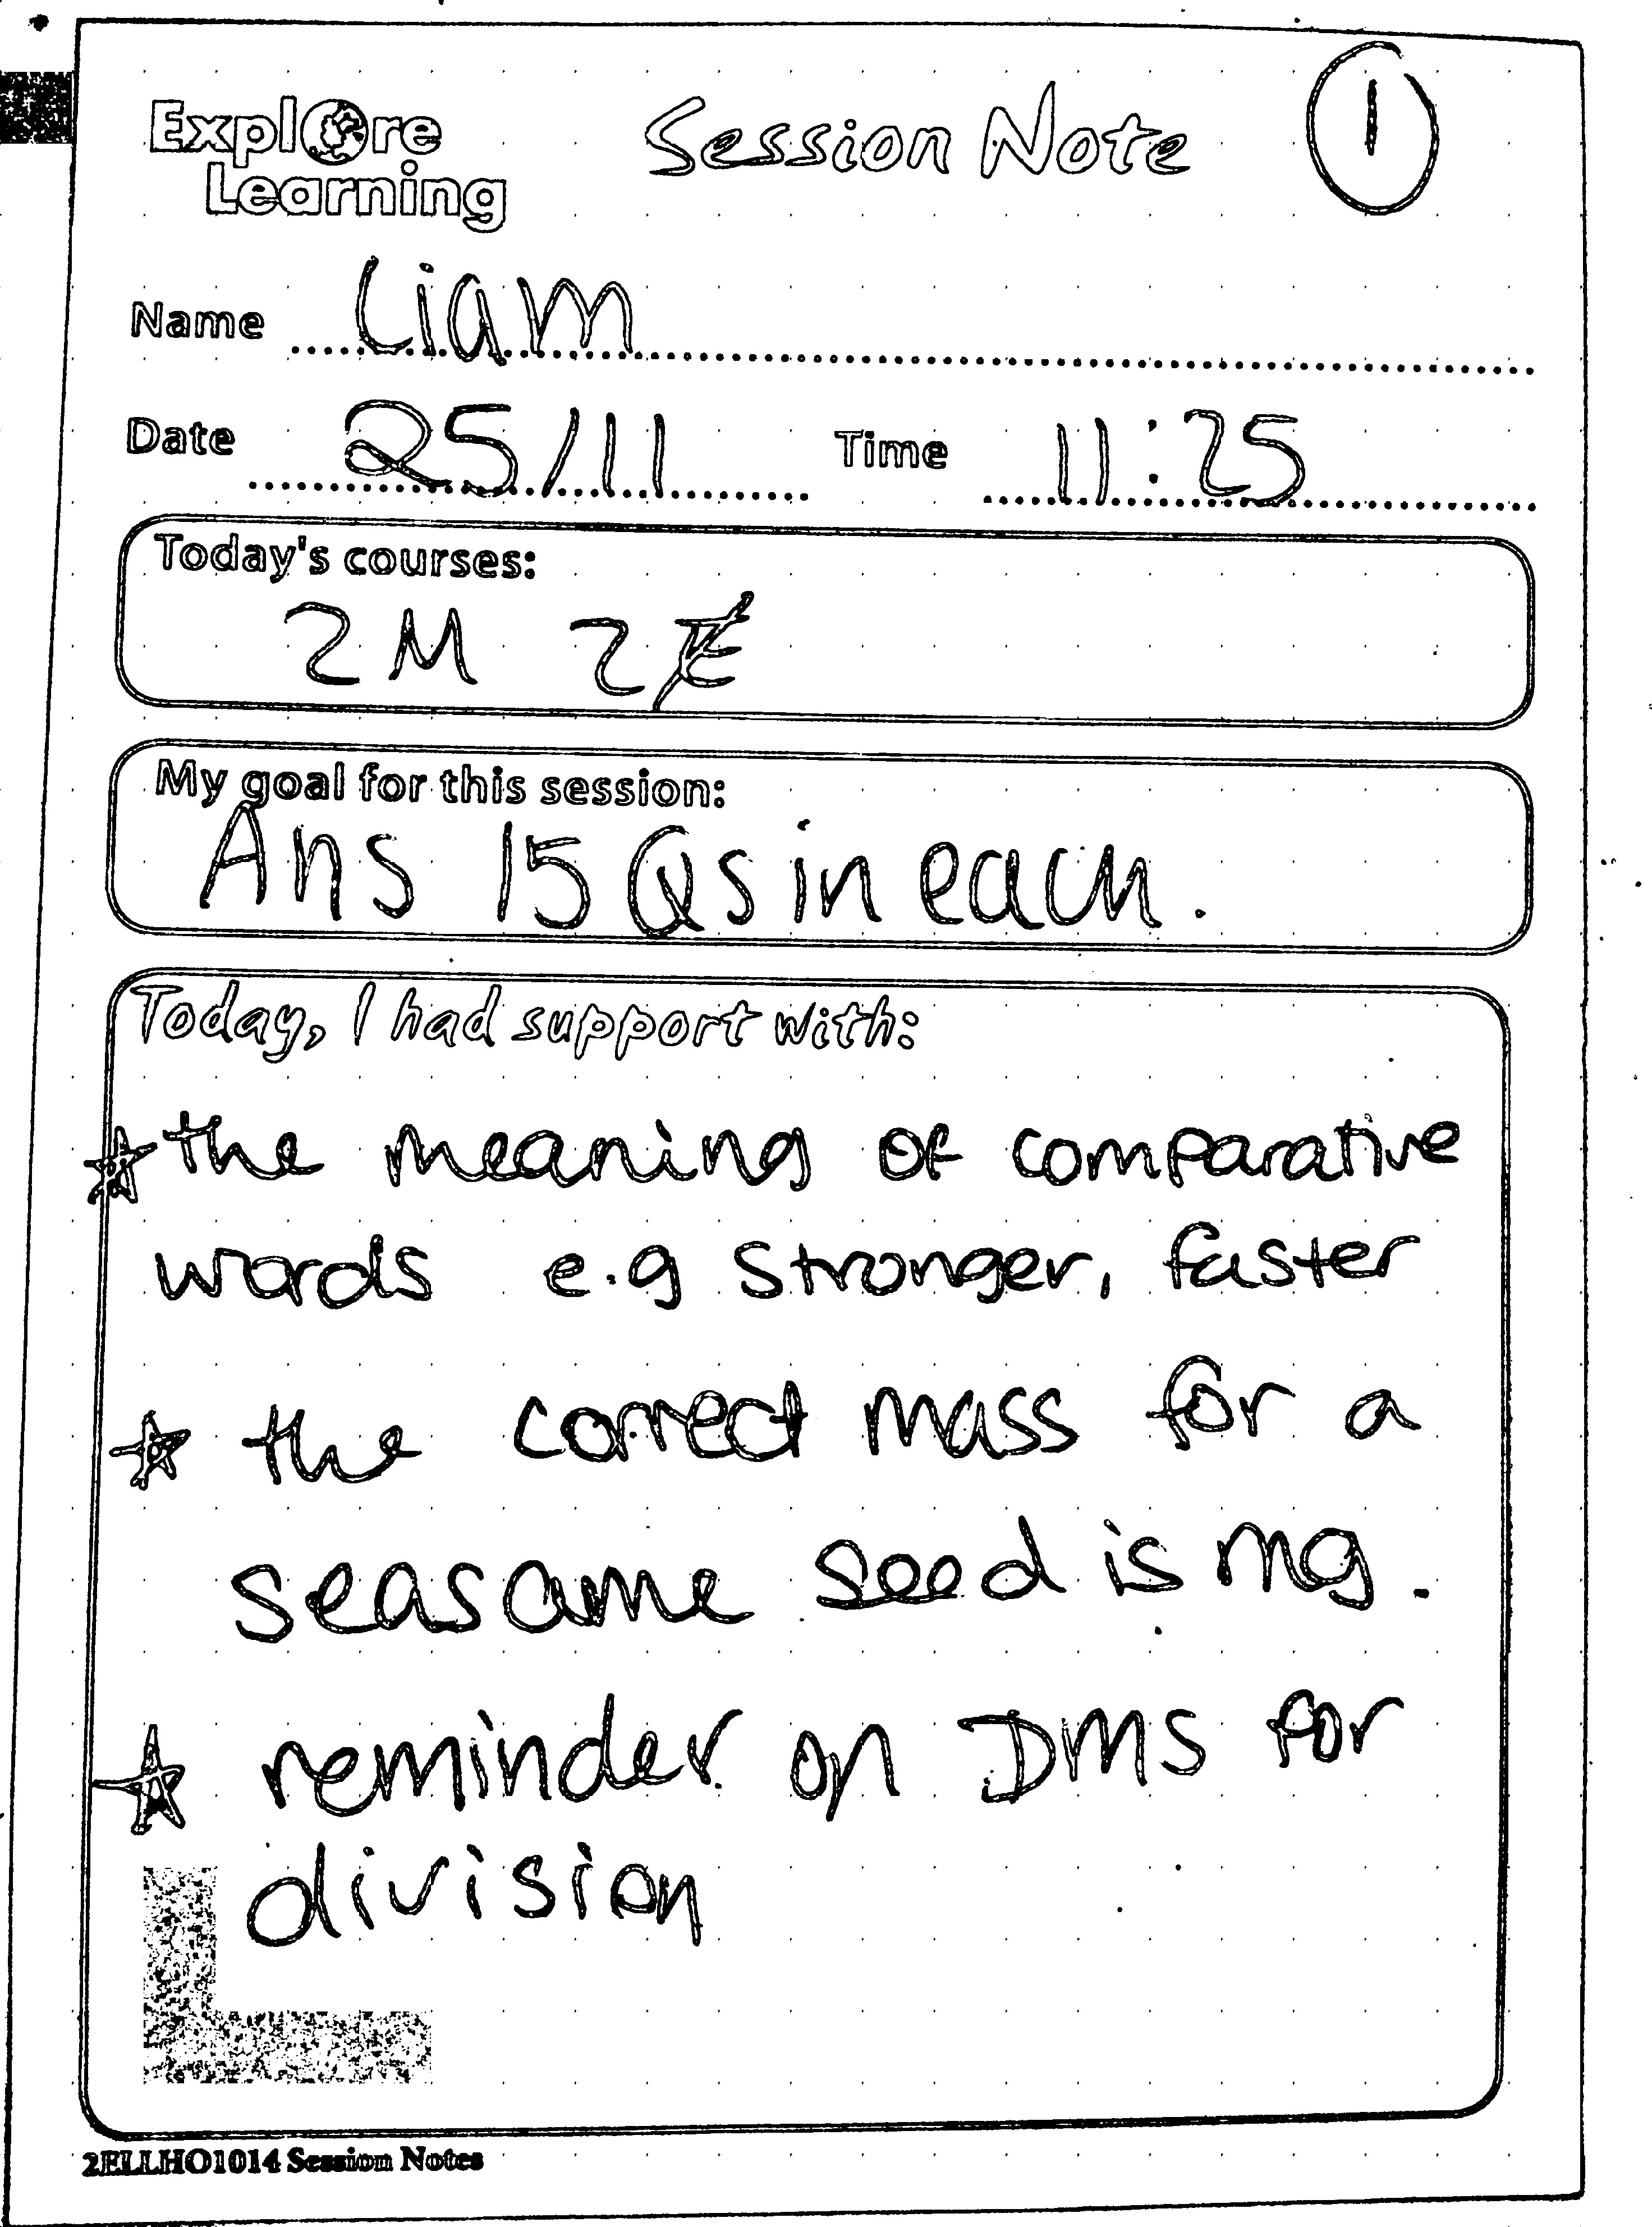 Explore
Learning
Session Note
1
Name Liam
Date 25/11 Time 11:25
Today's courses:
2M 2E
My goal for this session:
Ans 15 Qs in each.
Today, I had support with:
the meaning of comparative
words e.g stronger, faster
the correct mass for a
seasame seed is mg.
reminder on DMS for
division
2ELLHO1014 Session Notes